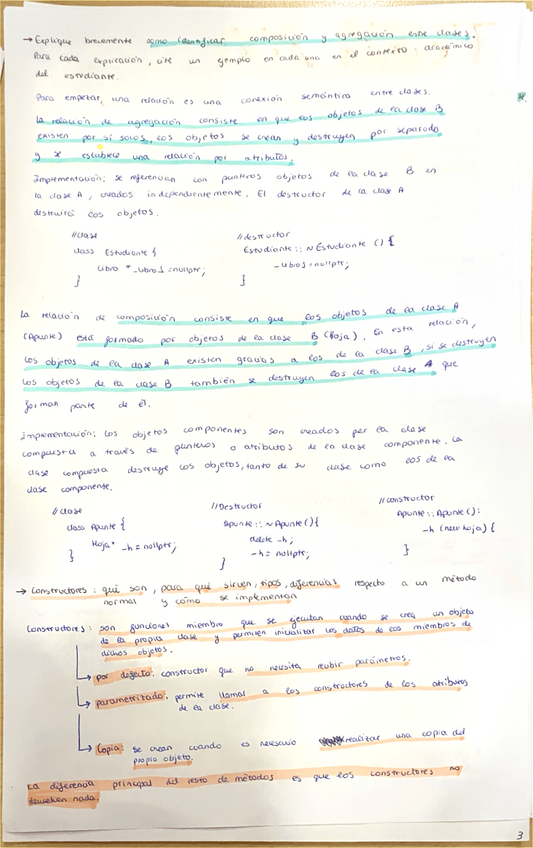 → Explique brevemente como identificar composición y agregación entre clases.
Para cada explicación, cite un ejemplo en cada una en el contexto académico
del estudiante.
Para empezar, una relación es una conexión semántica entre clases.
La relación de agregación consiste en que los objetos de la clase B
existen por sí solos, los objetos se crean y destruyen por separado
y se establece una relación por atributos.
Implementación: se referencian con punteros objetos de la clase B en
la clase A, creados independientemente. El destructor de la clase A
destruirá los objetos.
//clase
class Estudiante {
Libro * -libro1 = nullptr;
}
//destructor
Estudiante:: ~Estudiante () {
-libro1 = nullptr;
}
La relación de composición consiste en que los objetos de la clase A
(Apunte) está formado por objetos de la clase B (Hoja). En esta relación,
los objetos de la clase A existen gracias a los de la clase B, si se destruyen
los objetos de la clase B también se destruyen los de la clase A que
forman parte de él.
Implementación: los objetos componentes son creados por la clase
compuesta a través de punteros o atributos de la clase componente. La
clase compuesta destruye los objetos, tanto de su clase como los de la
clase componente.
//clase
class Apunte {
Hoja* -h = nullptr;
}
//Destructor
Apunte:: ~Apunte(){
delete -h;
-h = nullptr;
}
//constructor
Apunte:: Apunte():
-h (new hoja) {
}
→ Constructores: qué son, para qué sirven, tipos, diferencias respecto a un método
normal y cómo se implementan
Constructores: son funciones miembro que se ejecutan cuando se crea un objeto
de la propia clase y permiten inicializar los datos de los miembros de
dichos objetos.
↳ por defecto: constructor que no necesita recibir parámetros.
↳ parametrizado: permite llamar a los constructores de los atributos
de la clase.
↳ Copia: se crean cuando es necesario realizar una copia del
propio objeto.
La diferencia principal del resto de métodos es que los constructores no
devuelven nada.
3